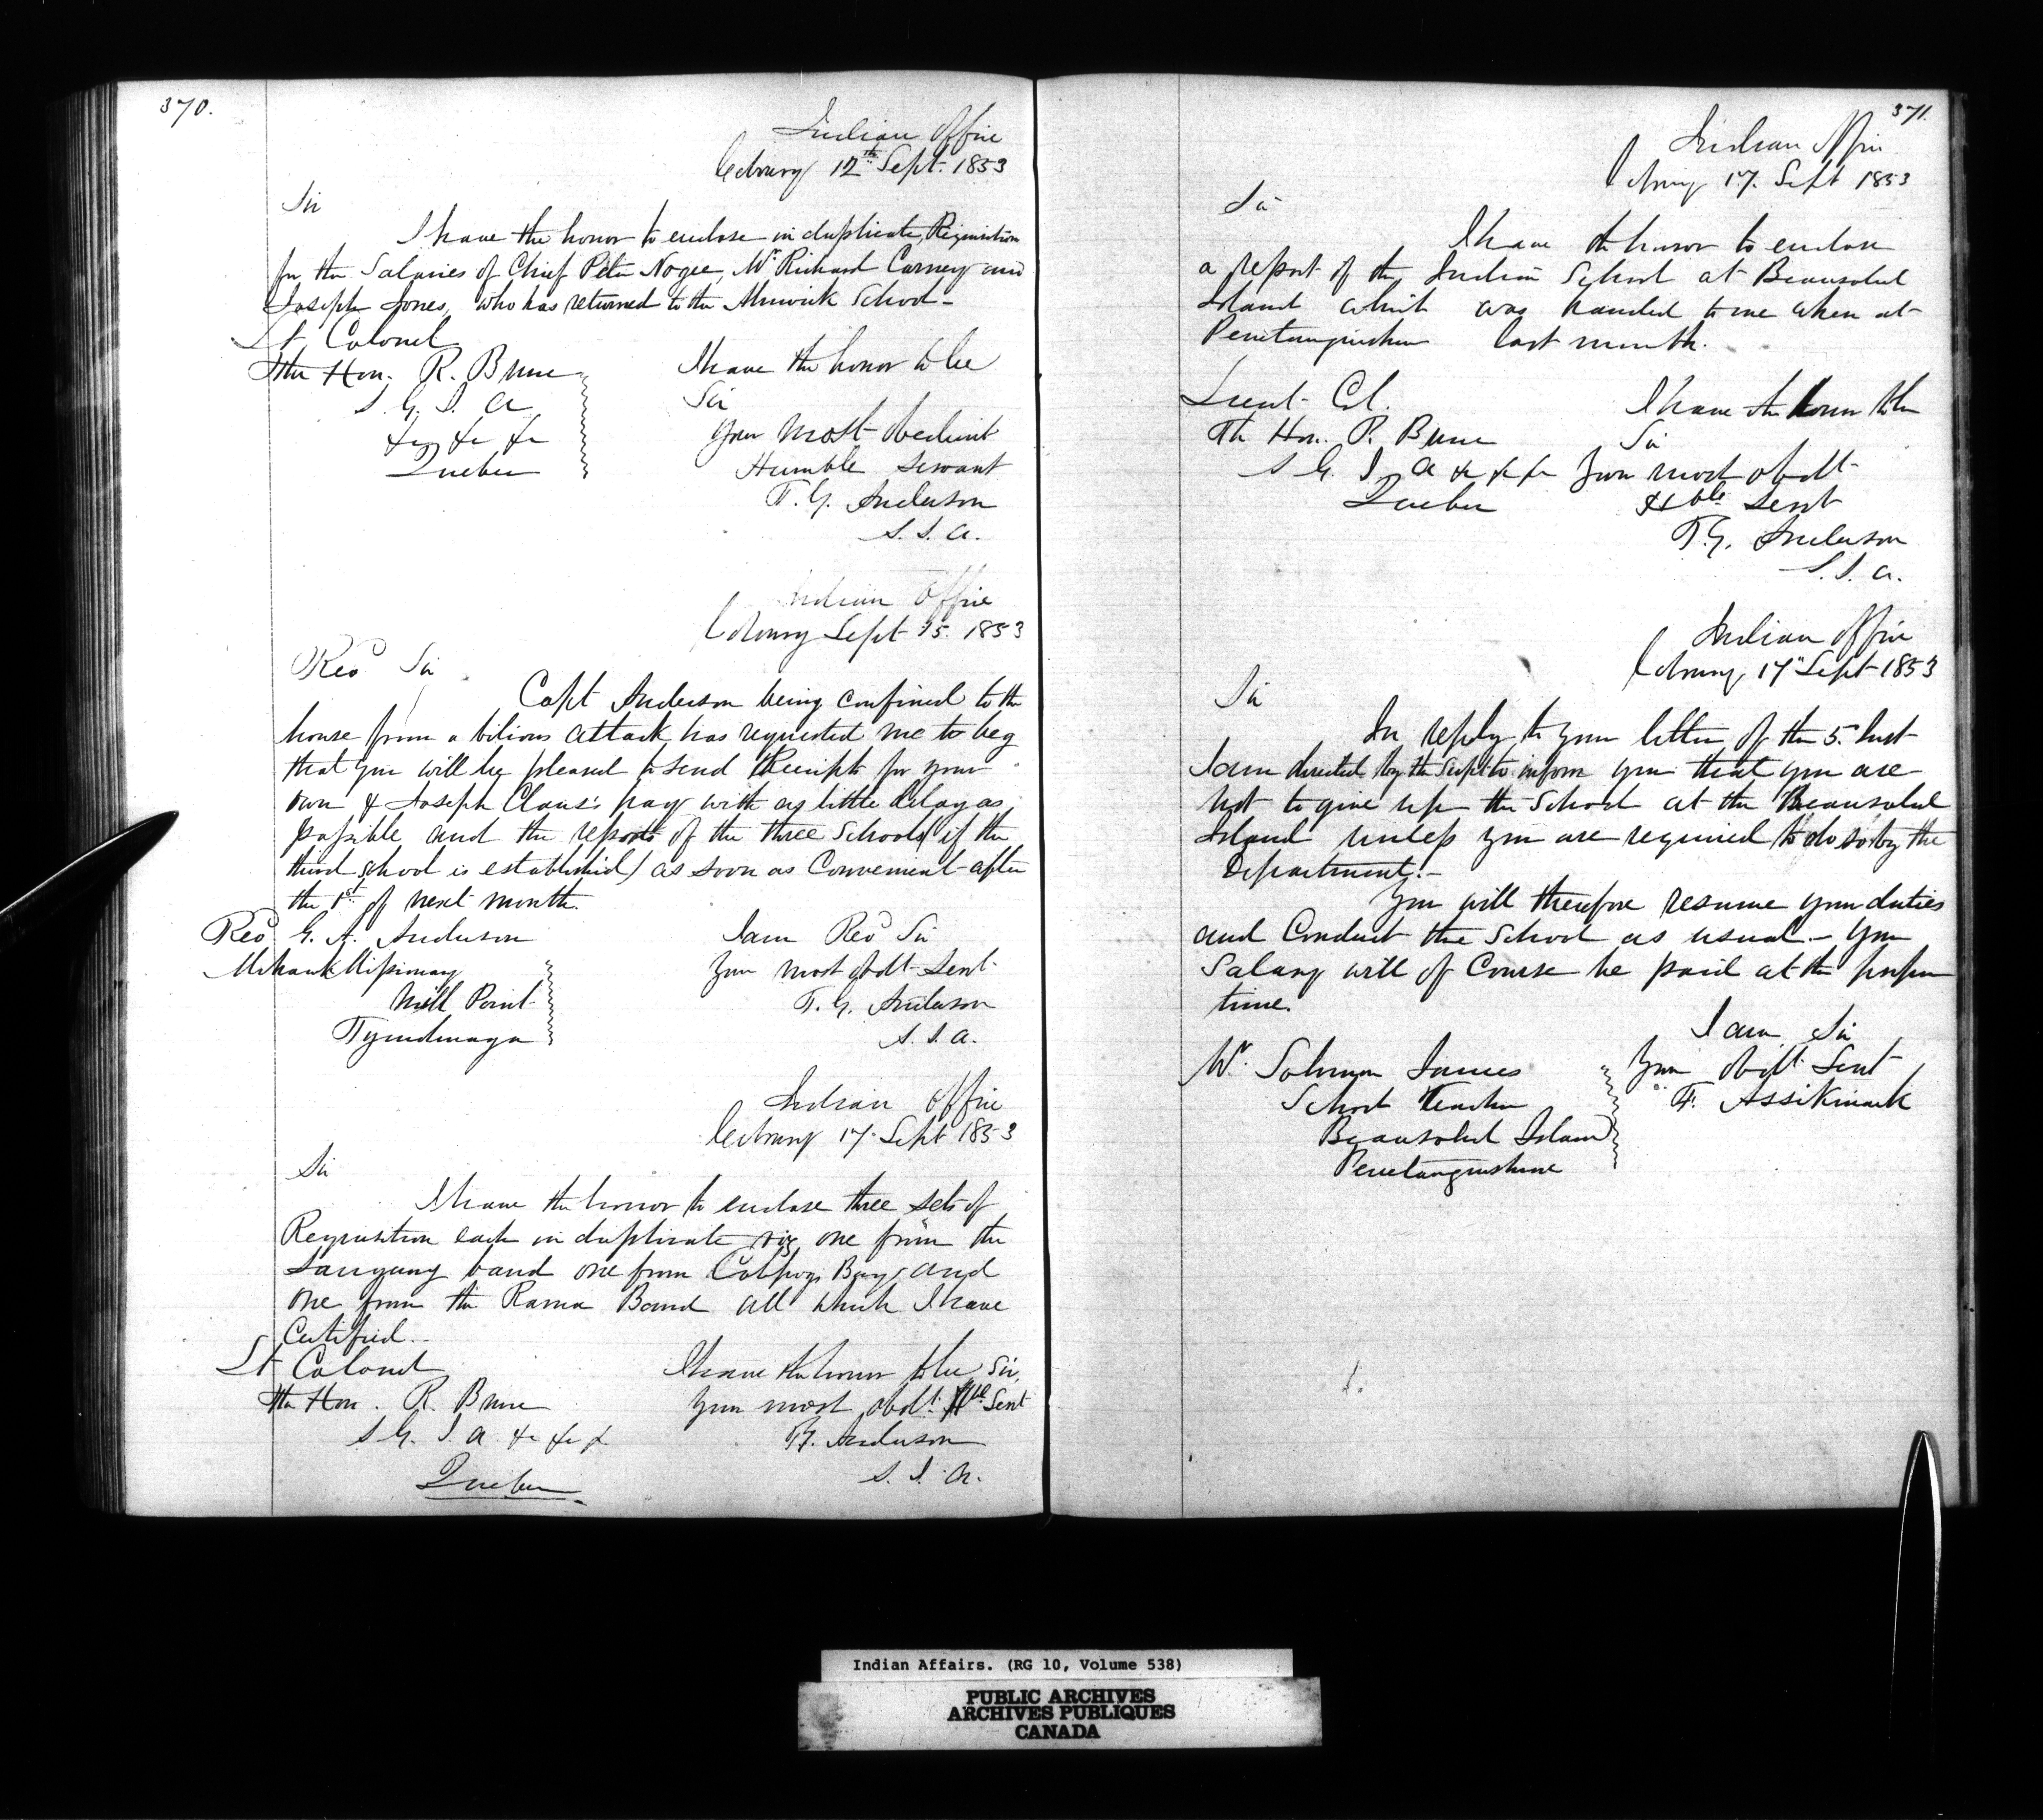 370.
Indian Office
Cobourg 12th Sept. 1853
Sir
I have the honor to enclose in duplicate, Requisition
for the Salaries of Chief Peter Nogee, Mr. Richard Carney and
Joseph Jones, who has returned to the Alnwick School -
Lt Colonel
The Hon. R. Bruce
S. G. I. A
&c &c &c
Quebec
I have the honor to be
Sir
Your most obedient
Humble servant
T. G. Anderson
S. I. A.
Indian Office
Cobourg Sept 15. 1853
Revd Sir
Capt Anderson being confined to the
house from a bilious attack has requested me to beg
that you will be pleased to send Receipts for your
own & Joseph Claus's pay with as little delay as
possible and the reports of the three Schools (if the
third school is established) as soon as Convenient after
the 1st of next month.
Revd G. A. Anderson
Mohawk Missionary
Mill Point
Tyendinaga
I am Revd Sir
Your most obdt Servt
T. G. Anderson
S. I. A.
Indian Office
Cobourg 17. Sept 1853
Sir
I have the honor to enclose three sets of
Requisition each in duplicate viz one from the
Saugeeng band one from Colpoys Bay, and
one from the Rama Band all which I have
Certified.
Lt Colonel
The Hon. R. Bruce
S G. I. A &c &c &
Quebec
I have the honor to be, Sir,
Your most obdt. Hble Servt
TG. Anderson
S. I. A.
371.
Indian Office
Cobourg 17. Sept 1853
Sir
I have the honor to enclose
a report of the Indian School at Beausoleil
Island which was handed to me when at
Penetanguishene last month.
Lieut Col.
The Hon. R. Bruce
S G. I. A &c &c &c
Quebec
I have the honor to be
Sir
Your most obdt
Hble Servt
T. G. Anderson
S. I. A.
Indian Office
Cobourg, 17" Sept 1853
Sir
In reply to your letter of the 5. Inst
I am directed by the Supt to inform you that you are
not to give up the School at the Beausoleil
Island unless you are required to do so by the
Department. -
You will therefore resume your duties
and Conduct the School as usual. - Your
Salary will of Course be paid at the proper
time.
I am, Sir
Your obdt. Servt
F. Assikinack
Mr. Solomon James
School Teacher
Beausoleil Island
Penetanguishene
Indian Affairs. (RG 10, Volume 538)
PUBLIC ARCHIVES
ARCHIVES PUBLIQUES
CANADA